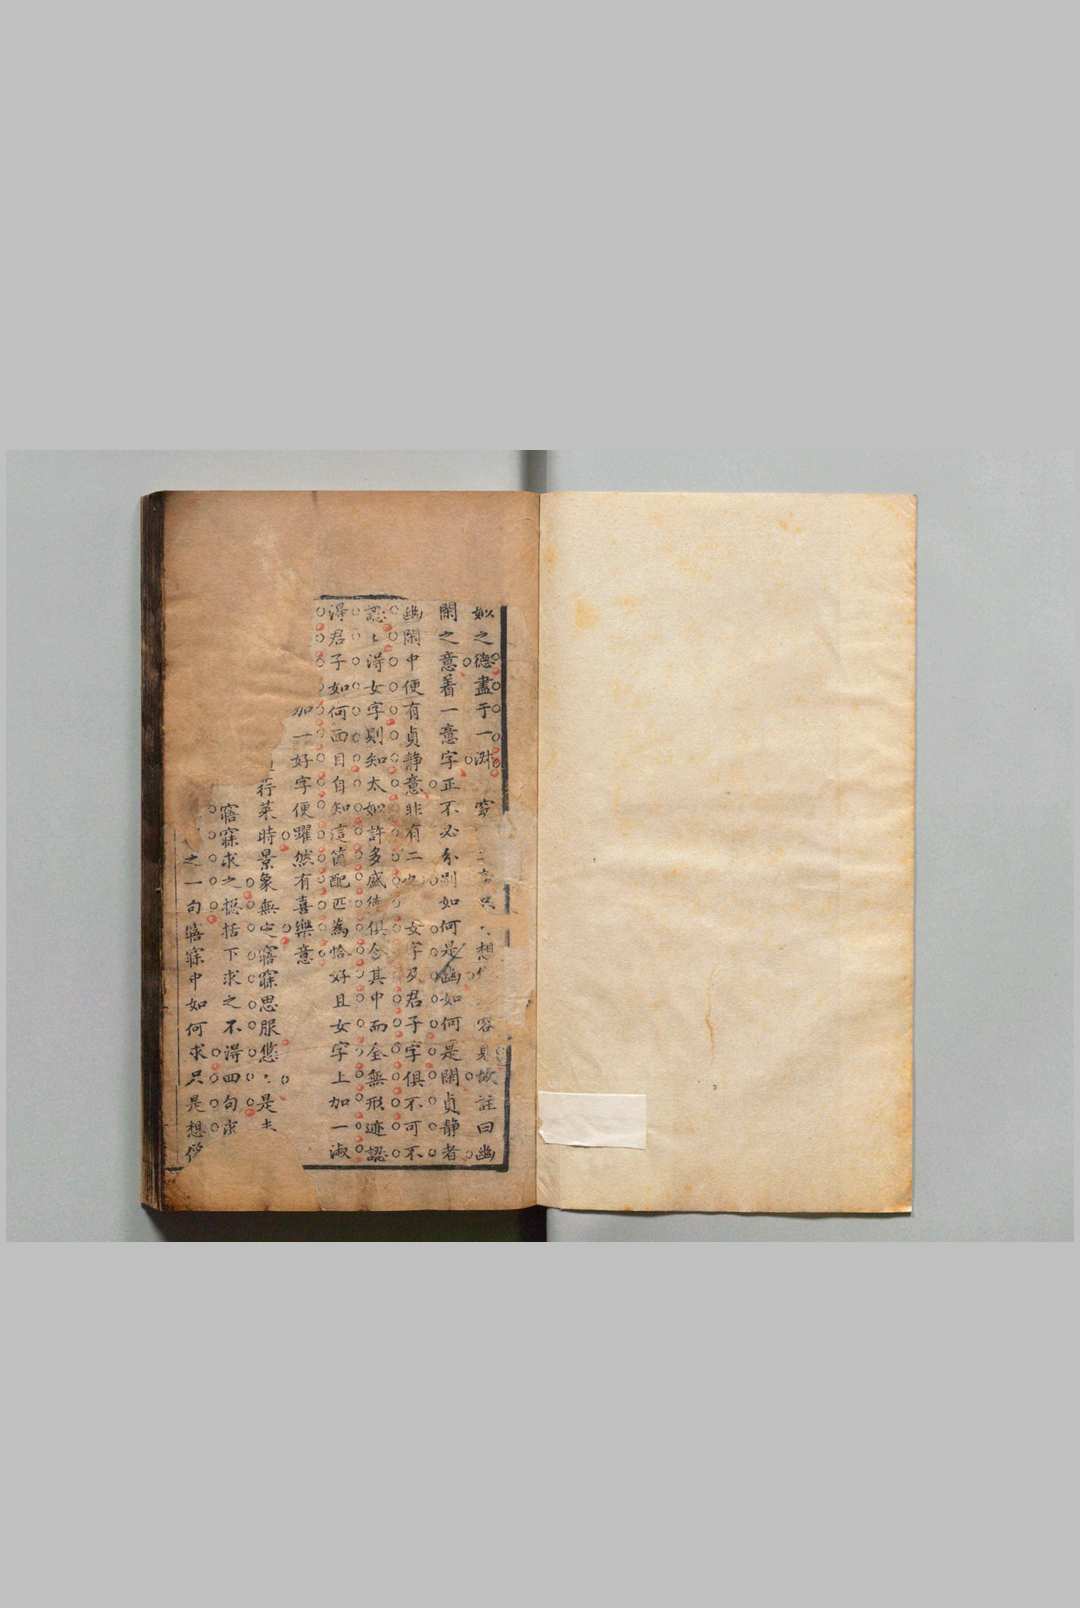 姒之德盡于一淑窈言只想像容易故註曰幽
閑之意着一意字正不必分別如何是幽如何是閑貞靜者
幽閑中便有貞靜意非有二也女字及君子字俱不可不
認認得女字則知太姒許多盛德俱含其中而全無形迹認
得君子如何面目自知這箇配匹為恰好且女字上加一淑
加一好字便躍然有喜樂意
荇菜時景象無定寤寐思服悠〻是
寤寐求之概括下求之不得四句求
之一句寤寐中如何求只是想像